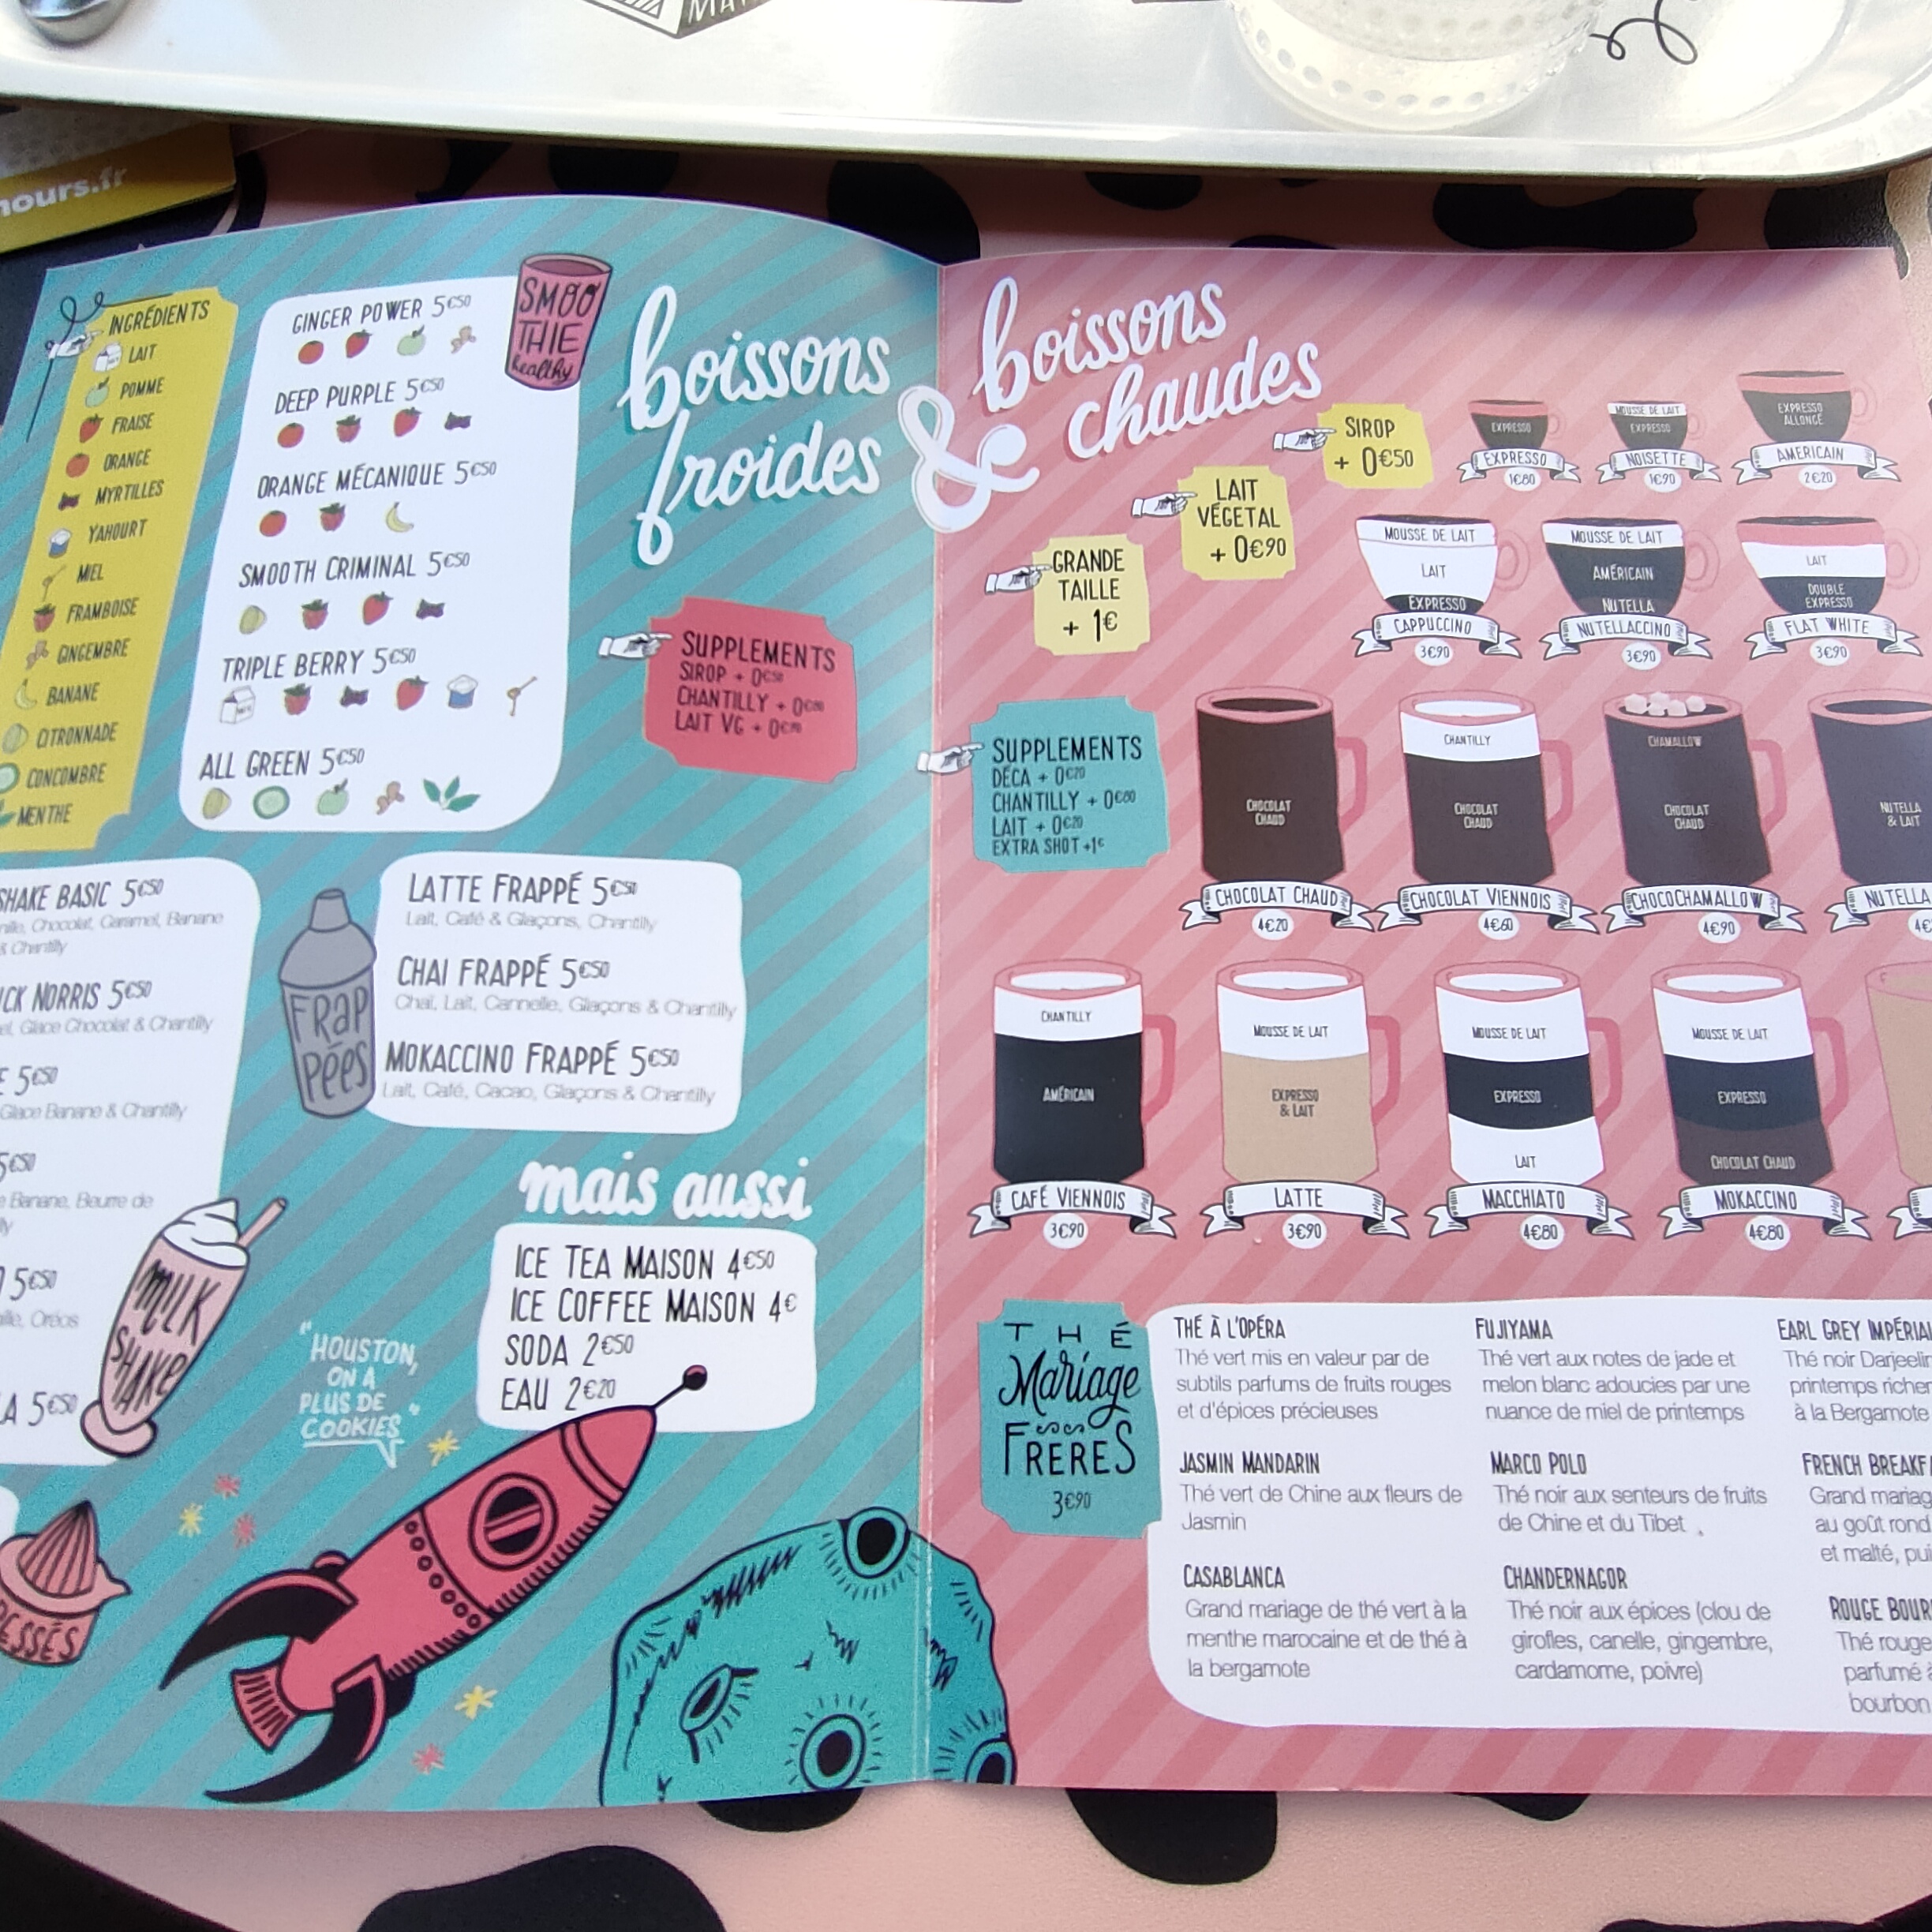 MA
nours.fr
INGRÉDIENTS
LAIT
POMME
FRAISE
ORANGE
MYRTILLES
YAHOURT
MIEL
FRAMBOISE
GINGEMBRE
BANANE
CITRONNADE
CONCOMBRE
MENTHE
GINGER POWER 5€50
DEEP PURPLE 5€50
ORANGE MÉCANIQUE 5€50
SMOOTH CRIMINAL 5€50
TRIPLE BERRY 5€50
ALL GREEN 5€50
SMOO
THIE
healthy
boissons
froides
&
boissons
chaudes
SUPPLEMENTS
SIROP + 0€50
CHANTILLY + 0€80
LAIT VG + 0€90
SHAKE BASIC 5€50
nille, Chocolat, Caramel, Banane
& Chantilly
CK NORRIS 5€50
el, Glace Chocolat & Chantilly
E 5€50
Glace Banane & Chantilly
5€50
e Banane, Beurre de
lly
5€50
ille, Oréos
LA 5€50
MILK
SHAKE
FRAP
PÉES
LATTE FRAPPÉ 5€50
Lait, Café & Glaçons, Chantilly
CHAI FRAPPÉ 5€50
Chaï, Lait, Cannelle, Glaçons & Chantilly
MOKACCINO FRAPPÉ 5€50
Lait, Café, Cacao, Glaçons & Chantilly
mais aussi
ICE TEA MAISON 4€50
ICE COFFEE MAISON 4€
SODA 2€50
EAU 2€20
"HOUSTON,
ON A
PLUS DE
COOKIES"
ESSÉS
SIROP
+ 0€50
LAIT
VÉGÉTAL
+ 0€90
GRANDE
TAILLE
+ 1€
EXPRESSO
EXPRESSO
1€80
MOUSSE DE LAIT
EXPRESSO
NOISETTE
1€90
EXPRESSO
ALLONGÉ
AMERICAIN
2€20
MOUSSE DE LAIT
LAIT
EXPRESSO
CAPPUCCINO
3€90
MOUSSE DE LAIT
AMÉRICAIN
NUTELLA
NUTELLACCINO
3€90
LAIT
DOUBLE
EXPRESSO
FLAT WHITE
3€90
SUPPLEMENTS
DÉCA + 0€20
CHANTILLY + 0€80
LAIT + 0€20
EXTRA SHOT +1€
CHOCOLAT
CHAUD
CHOCOLAT CHAUD
4€20
CHANTILLY
CHOCOLAT
CHAUD
CHOCOLAT VIENNOIS
4€60
CHAMALLOW
CHOCOLAT
CHAUD
CHOCOCHAMALLOW
4€90
NUTELLA
& LAIT
NUTELLA
4€
CHANTILLY
AMÉRICAIN
CAFÉ VIENNOIS
3€90
MOUSSE DE LAIT
EXPRESSO
& LAIT
LATTE
3€90
MOUSSE DE LAIT
EXPRESSO
LAIT
MACCHIATO
4€80
MOUSSE DE LAIT
EXPRESSO
CHOCOLAT CHAUD
MOKACCINO
4€80
THÉ
Mariage
FRERES
3€90
THÉ À L'OPÉRA
Thé vert mis en valeur par de
subtils parfums de fruits rouges
et d'épices précieuses
JASMIN MANDARIN
Thé vert de Chine aux fleurs de
Jasmin
CASABLANCA
Grand mariage de thé vert à la
menthe marocaine et de thé à
la bergamote
FUJIYAMA
Thé vert aux notes de jade et
melon blanc adoucies par une
nuance de miel de printemps
MARCO POLO
Thé noir aux senteurs de fruits
de Chine et du Tibet
CHANDERNAGOR
Thé noir aux épices (clou de
girofles, canelle, gingembre,
cardamome, poivre)
EARL GREY IMPÉRIAL
Thé noir Darjeelin
printemps riche
à la Bergamote
FRENCH BREAKFA
Grand mariag
au goût rond
et malté, pui
ROUGE BOUR
Thé rouge
parfumé à
bourbon